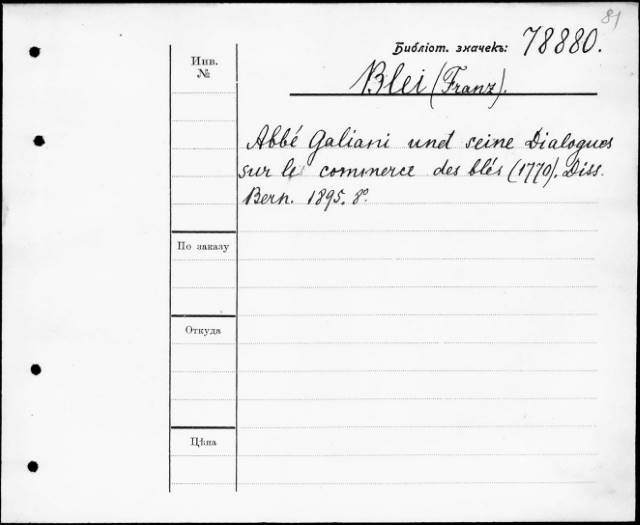 81
Библіот. значекъ: 78880.
Инв.
№
Blei (Franz).
Abbé Galiani und seine Dialogues
sur le commerce des blés (1770). Diss.
Bern. 1895. 8°.
По заказу
Откуда
Цѣна